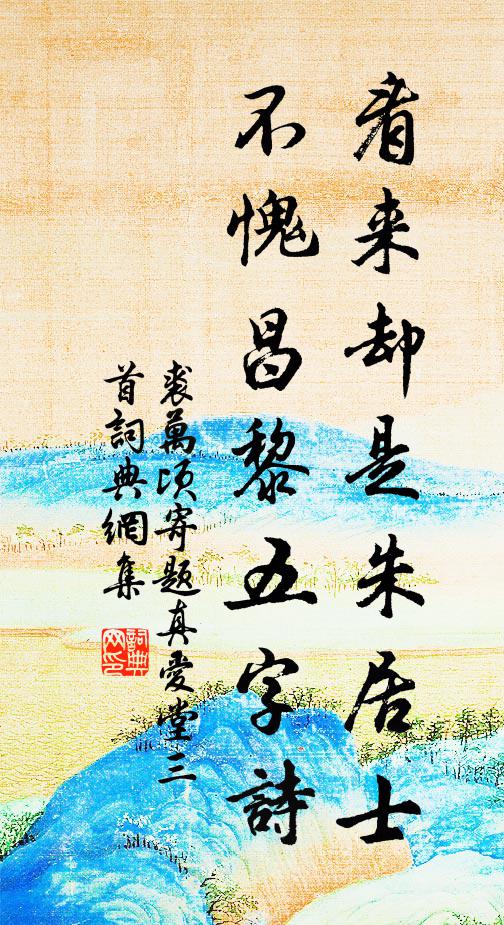 看来却是朱居士
不愧昌黎五字詩
裘萬頃寄題真愛堂三
首詞典網集
詞典
网印